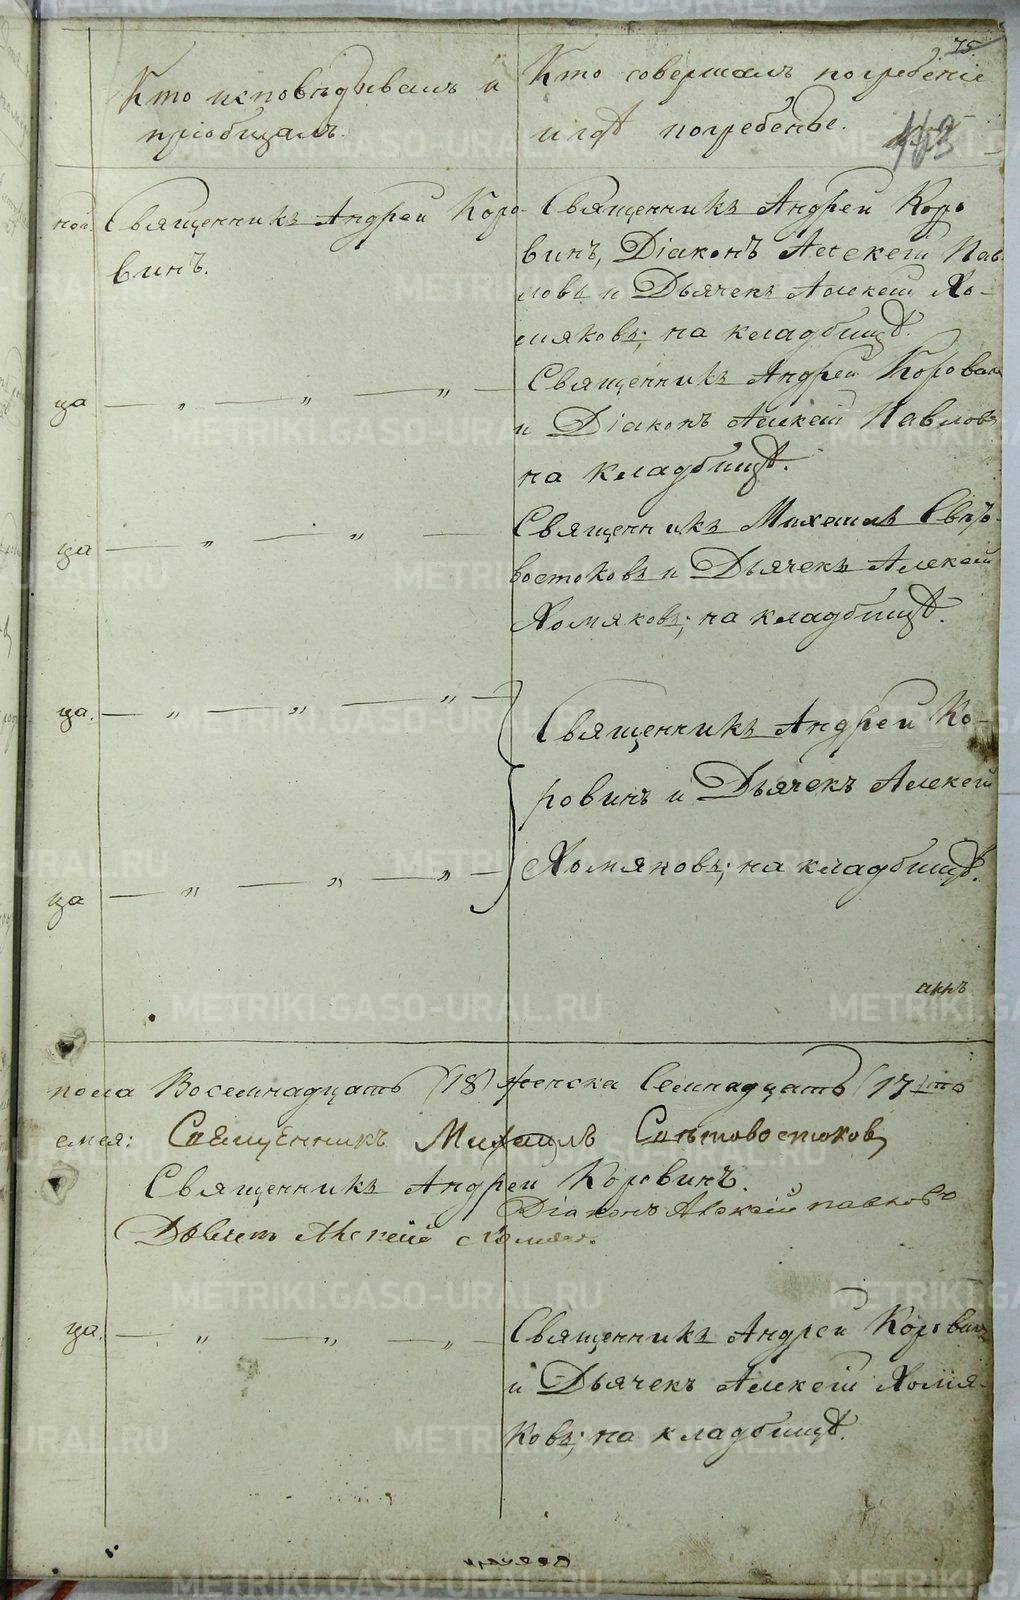 75
163
Кто исповѣдывалъ и
пріобщалъ.
Кто совершалъ погребеніе
и гдѣ погребены.
ной. Священникъ Андрей Коро-
винъ.
Священникъ Андрей Коро
винъ, Діаконъ Алексѣй Пав
ловъ и Дьячекъ Алексѣй Хо-
мяковъ; на кладбищѣ.
ца — „ — „ — „ —
Священникъ Андрей Коровинъ
и Діаконъ Алексѣй Павловъ
на кладбищѣ.
ца — „ — „ —
Священникъ Михаилъ Свѣто-
востоковъ и Дьячекъ Алексѣй
Хомяковъ; на кладбищѣ.
ца. — „ — „ — „ —
Священникъ Андрей Ко-
ровинъ и Дьячекъ Алексѣй
ца — „ — „ — „ —
Хомяковъ; на кладбищѣ.
пола Восемнадцать (18) женска Семнадцать (17) то
Священникъ Михаилъ Свѣтовостоковъ
Священникъ Андрей Коровинъ.
Діаконъ Алексѣй Павловъ
Дьячекъ Алексѣй Хомяковъ
ца. — „ — „ — „ —
Священникъ Андрей Коровинъ
и Дьячекъ Алексѣй Хомя-
ковъ; на кладбищѣ.
METRIKI.GASO-URAL.RU